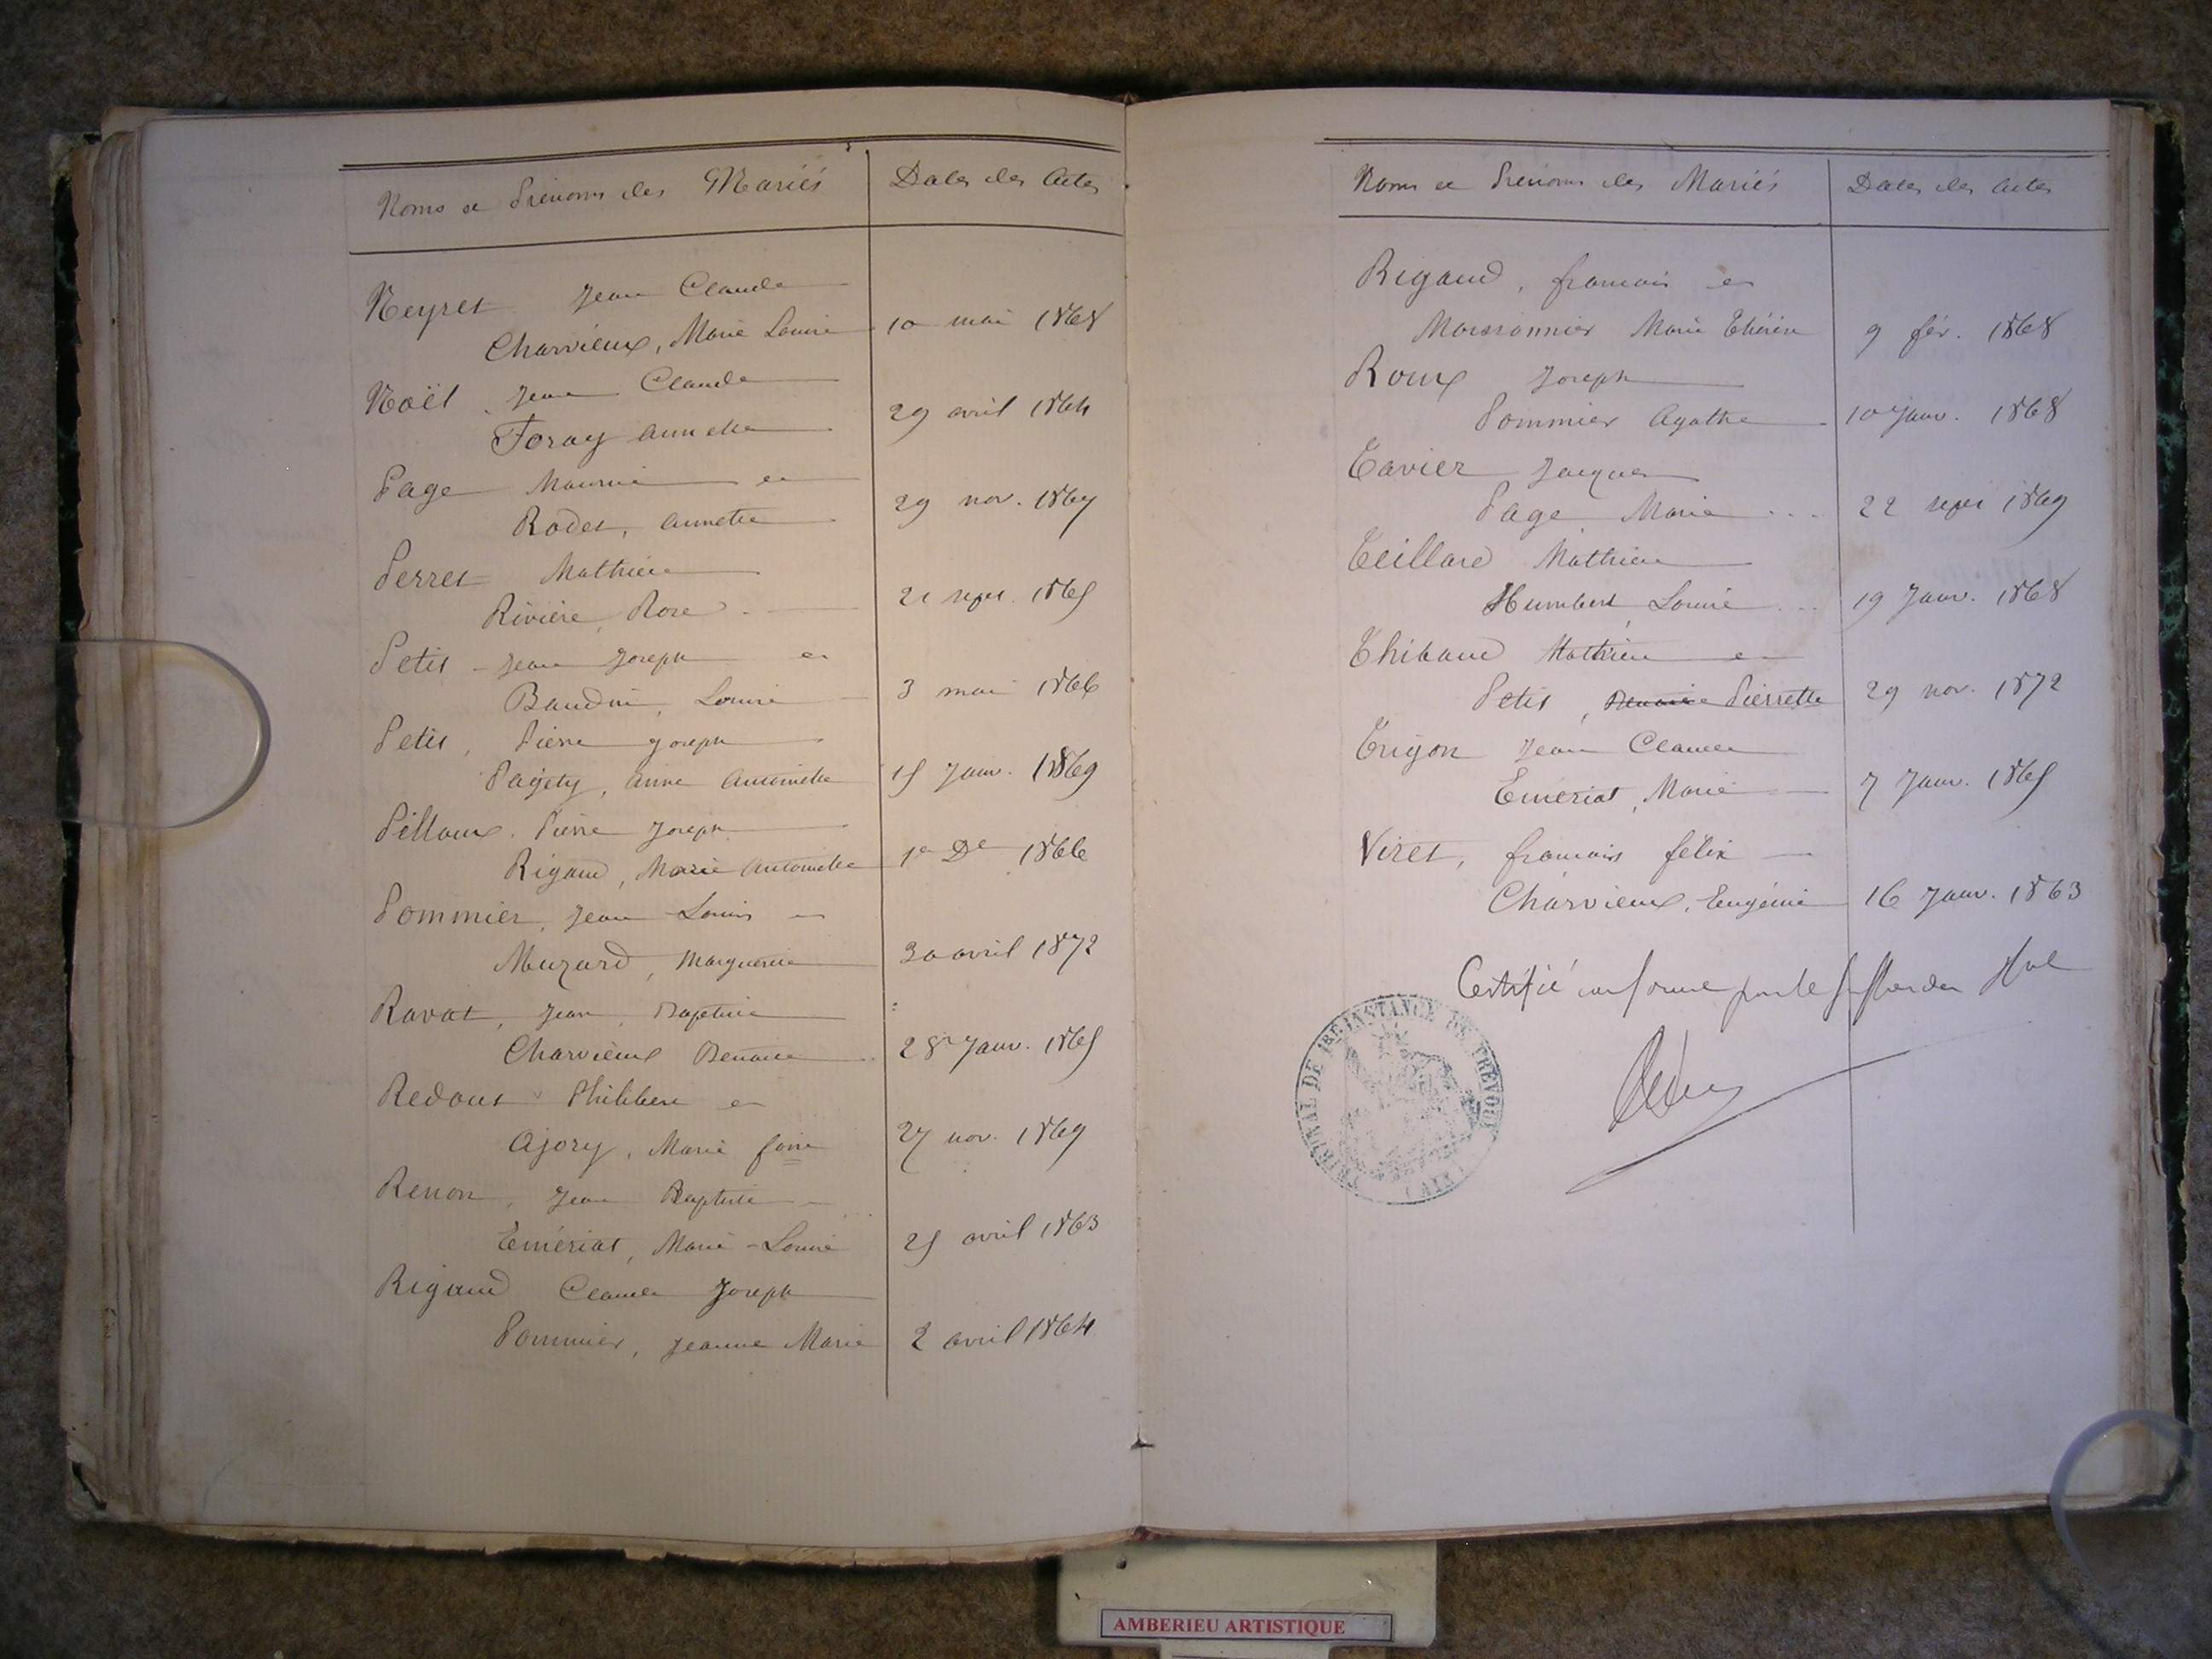 Noms et Prénoms des Mariés Dates des Actes
Neyret Jean Claude
Charvieux, Marie Louise 10 mai 1868
Noël, Jean Claude
Foray annette 29 avril 1864
Page Maurice et
Rodet, annette 29 nov. 1867
Perret Mathieu
Rivière, Rose 21 sept. 1865
Petit Jean Joseph et
Baudin, Louise 3 mai 1866
Petit, Pierre Joseph
Pagety, anne antoinette 15 Janv. 1869
Pilloux. Pierre Joseph
Rigaud, Marie antoinette 1er De 1866
Pommier, Jean Louis et
Muzard, Marguerite 30 avril 1872
Ravat, Jean, Baptiste
Charvieux Benoite 28 Janv. 1865
Redout Philibert et
Ajory, Marie 27 nov. 1869
Renon, Jean Baptiste
Emériat, Marie-Louise 25 avril 1863
Rigaud Claude Joseph
Pommier, Jeanne Marie 2 avril 1864
Noms et Prénoms des Mariés Dates des Actes
Rigaud, francois et
Moissonnier Marie Thérèse 9 fév. 1868
Roux Joseph
Pommier Agathe 10 Janv. 1868
Tavier Jacques
Page Marie 22 sept 1869
Teillard Mathieu
Humbert, Louise 19 Janv. 1868
Thibaud Mathieu et
Petit, Pierrette 29 nov. 1872
Trigon Jean Claude
Emeriat, Marie 7 Janv. 1865
Viret, francois félix
Charvieux, Eugénie 16 Janv. 1863
Certifié conforme par le
TRIBUNAL DE 1RE INSTANCE DE TREVOUX
(AIN)
AMBERIEU ARTISTIQUE